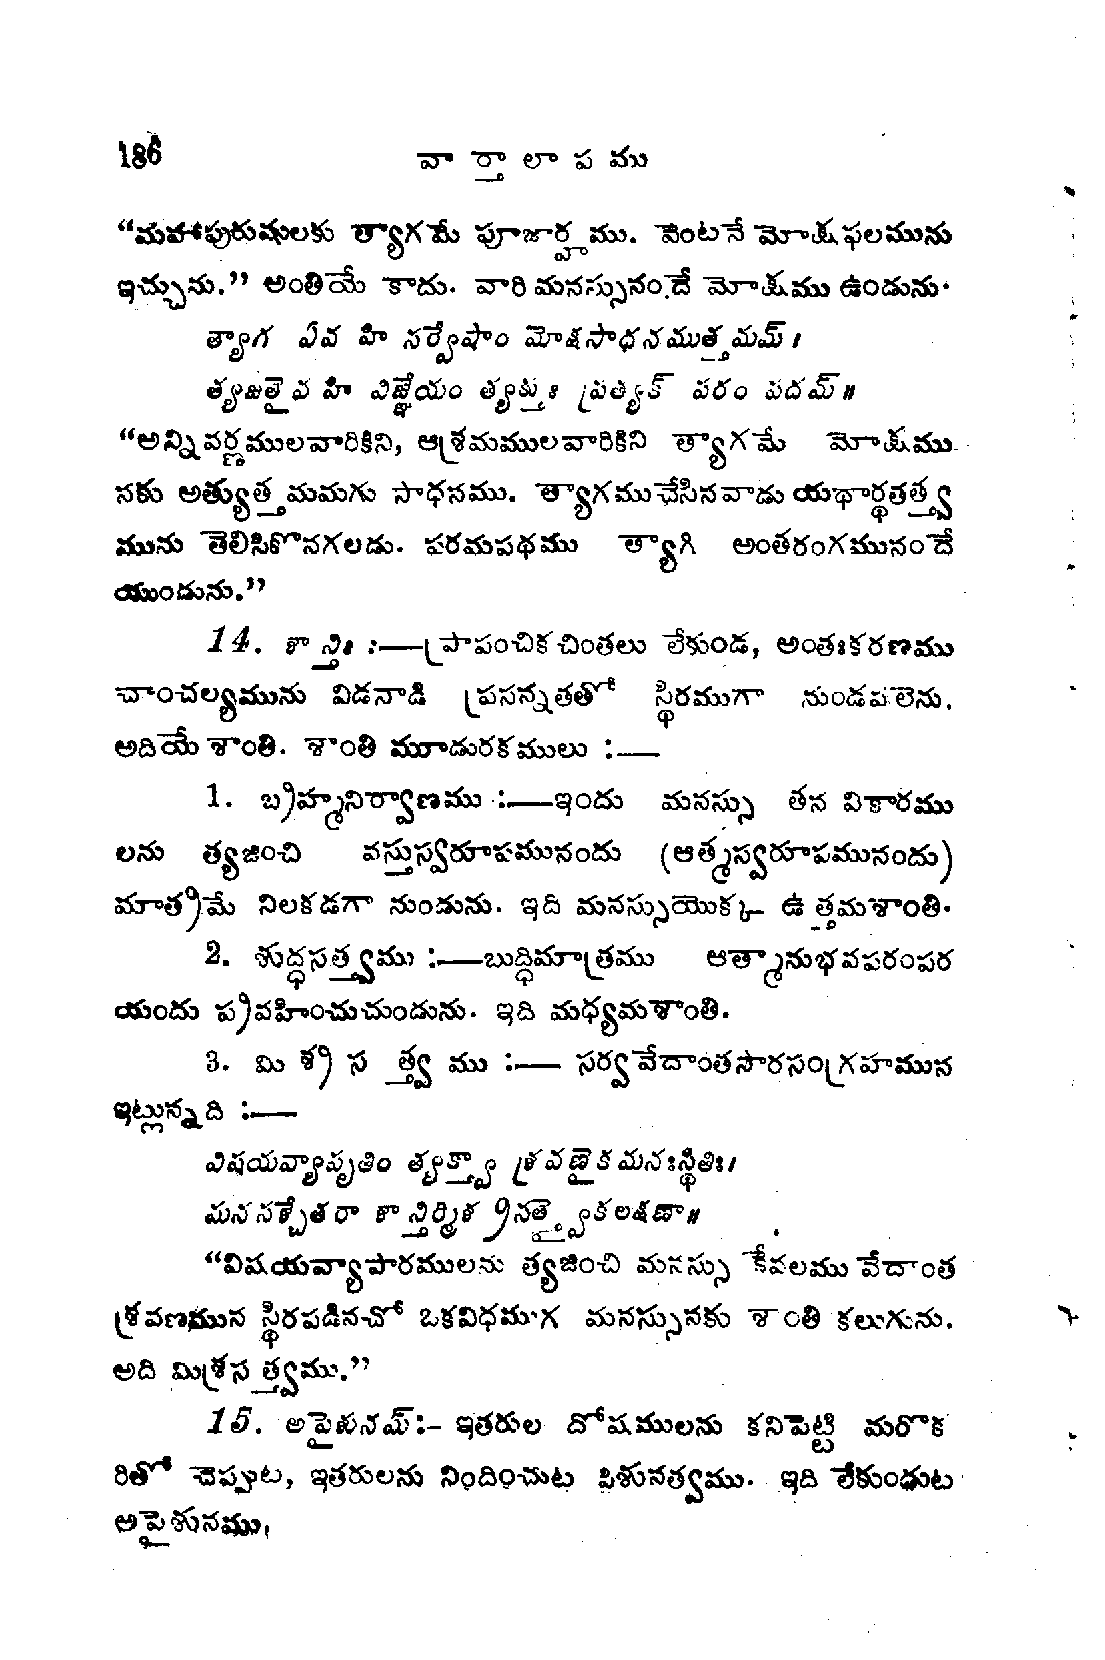 186 వార్తాలాపము
“మహాపురుషులకు త్యాగమే పూజార్హము. వెంటనే మోక్షఫలమును
ఇచ్చును.” అంతియే కాదు. వారి మనస్సునందే మోక్షము ఉండును.
త్యాగ ఏవ హి సర్వేషాం మోక్షసాధనముత్తమమ్।
త్యజతైవ హి విజ్ఞేయం త్యక్తుః ప్రత్యక్ పరం పదమ్॥
“అన్ని వర్ణములవారికిని, ఆశ్రమములవారికిని త్యాగమే మోక్షము
నకు అత్యుత్తమమగు సాధనము. త్యాగముచేసినవాడు యథార్థతత్త్వ
మును తెలిసికొనగలడు. పరమపథము త్యాగి అంతరంగమునందే
యుండును.”
14. శాన్తిః :—ప్రాపంచికచింతలు లేకుండ, అంతఃకరణము
చాంచల్యమును విడనాడి ప్రసన్నతతో స్థిరముగా నుండవలెను.
అదియే శాంతి. శాంతి మూడురకములు :—
1. బ్రహ్మనిర్వాణము :—ఇందు మనస్సు తన వికారము
లను త్యజించి వస్తుస్వరూపమునందు (ఆత్మస్వరూపమునందు)
మాత్రమే నిలకడగా నుండును. ఇది మనస్సుయొక్క ఉత్తమశాంతి.
2. శుద్ధసత్త్వము :—బుద్ధిమాత్రము ఆత్మానుభవపరంపర
యందు ప్రవహించుచుండును. ఇది మధ్యమశాంతి.
3. మిశ్రసత్త్వము :— సర్వవేదాంతసారసంగ్రహమున
ఇట్లున్నది :—
విషయవ్యాపృతిం త్యక్త్వా శ్రవణైకమనఃస్థితిః।
మనసశ్చేతరా శాన్తిర్మిశ్రసత్త్వైకలక్షణా॥
“విషయవ్యాపారములను త్యజించి మనస్సు కేవలము వేదాంత
శ్రవణమున స్థిరపడినచో ఒకవిధమగ మనస్సునకు శాంతి కలుగును.
అది మిశ్రసత్త్వము.”
15. అపైశునమ్:- ఇతరుల దోషములను కనిపెట్టి మరొక
రితో చెప్పుట, ఇతరులను నిందించుట పిశునత్వము. ఇది లేకుండుట
అపైశునము,